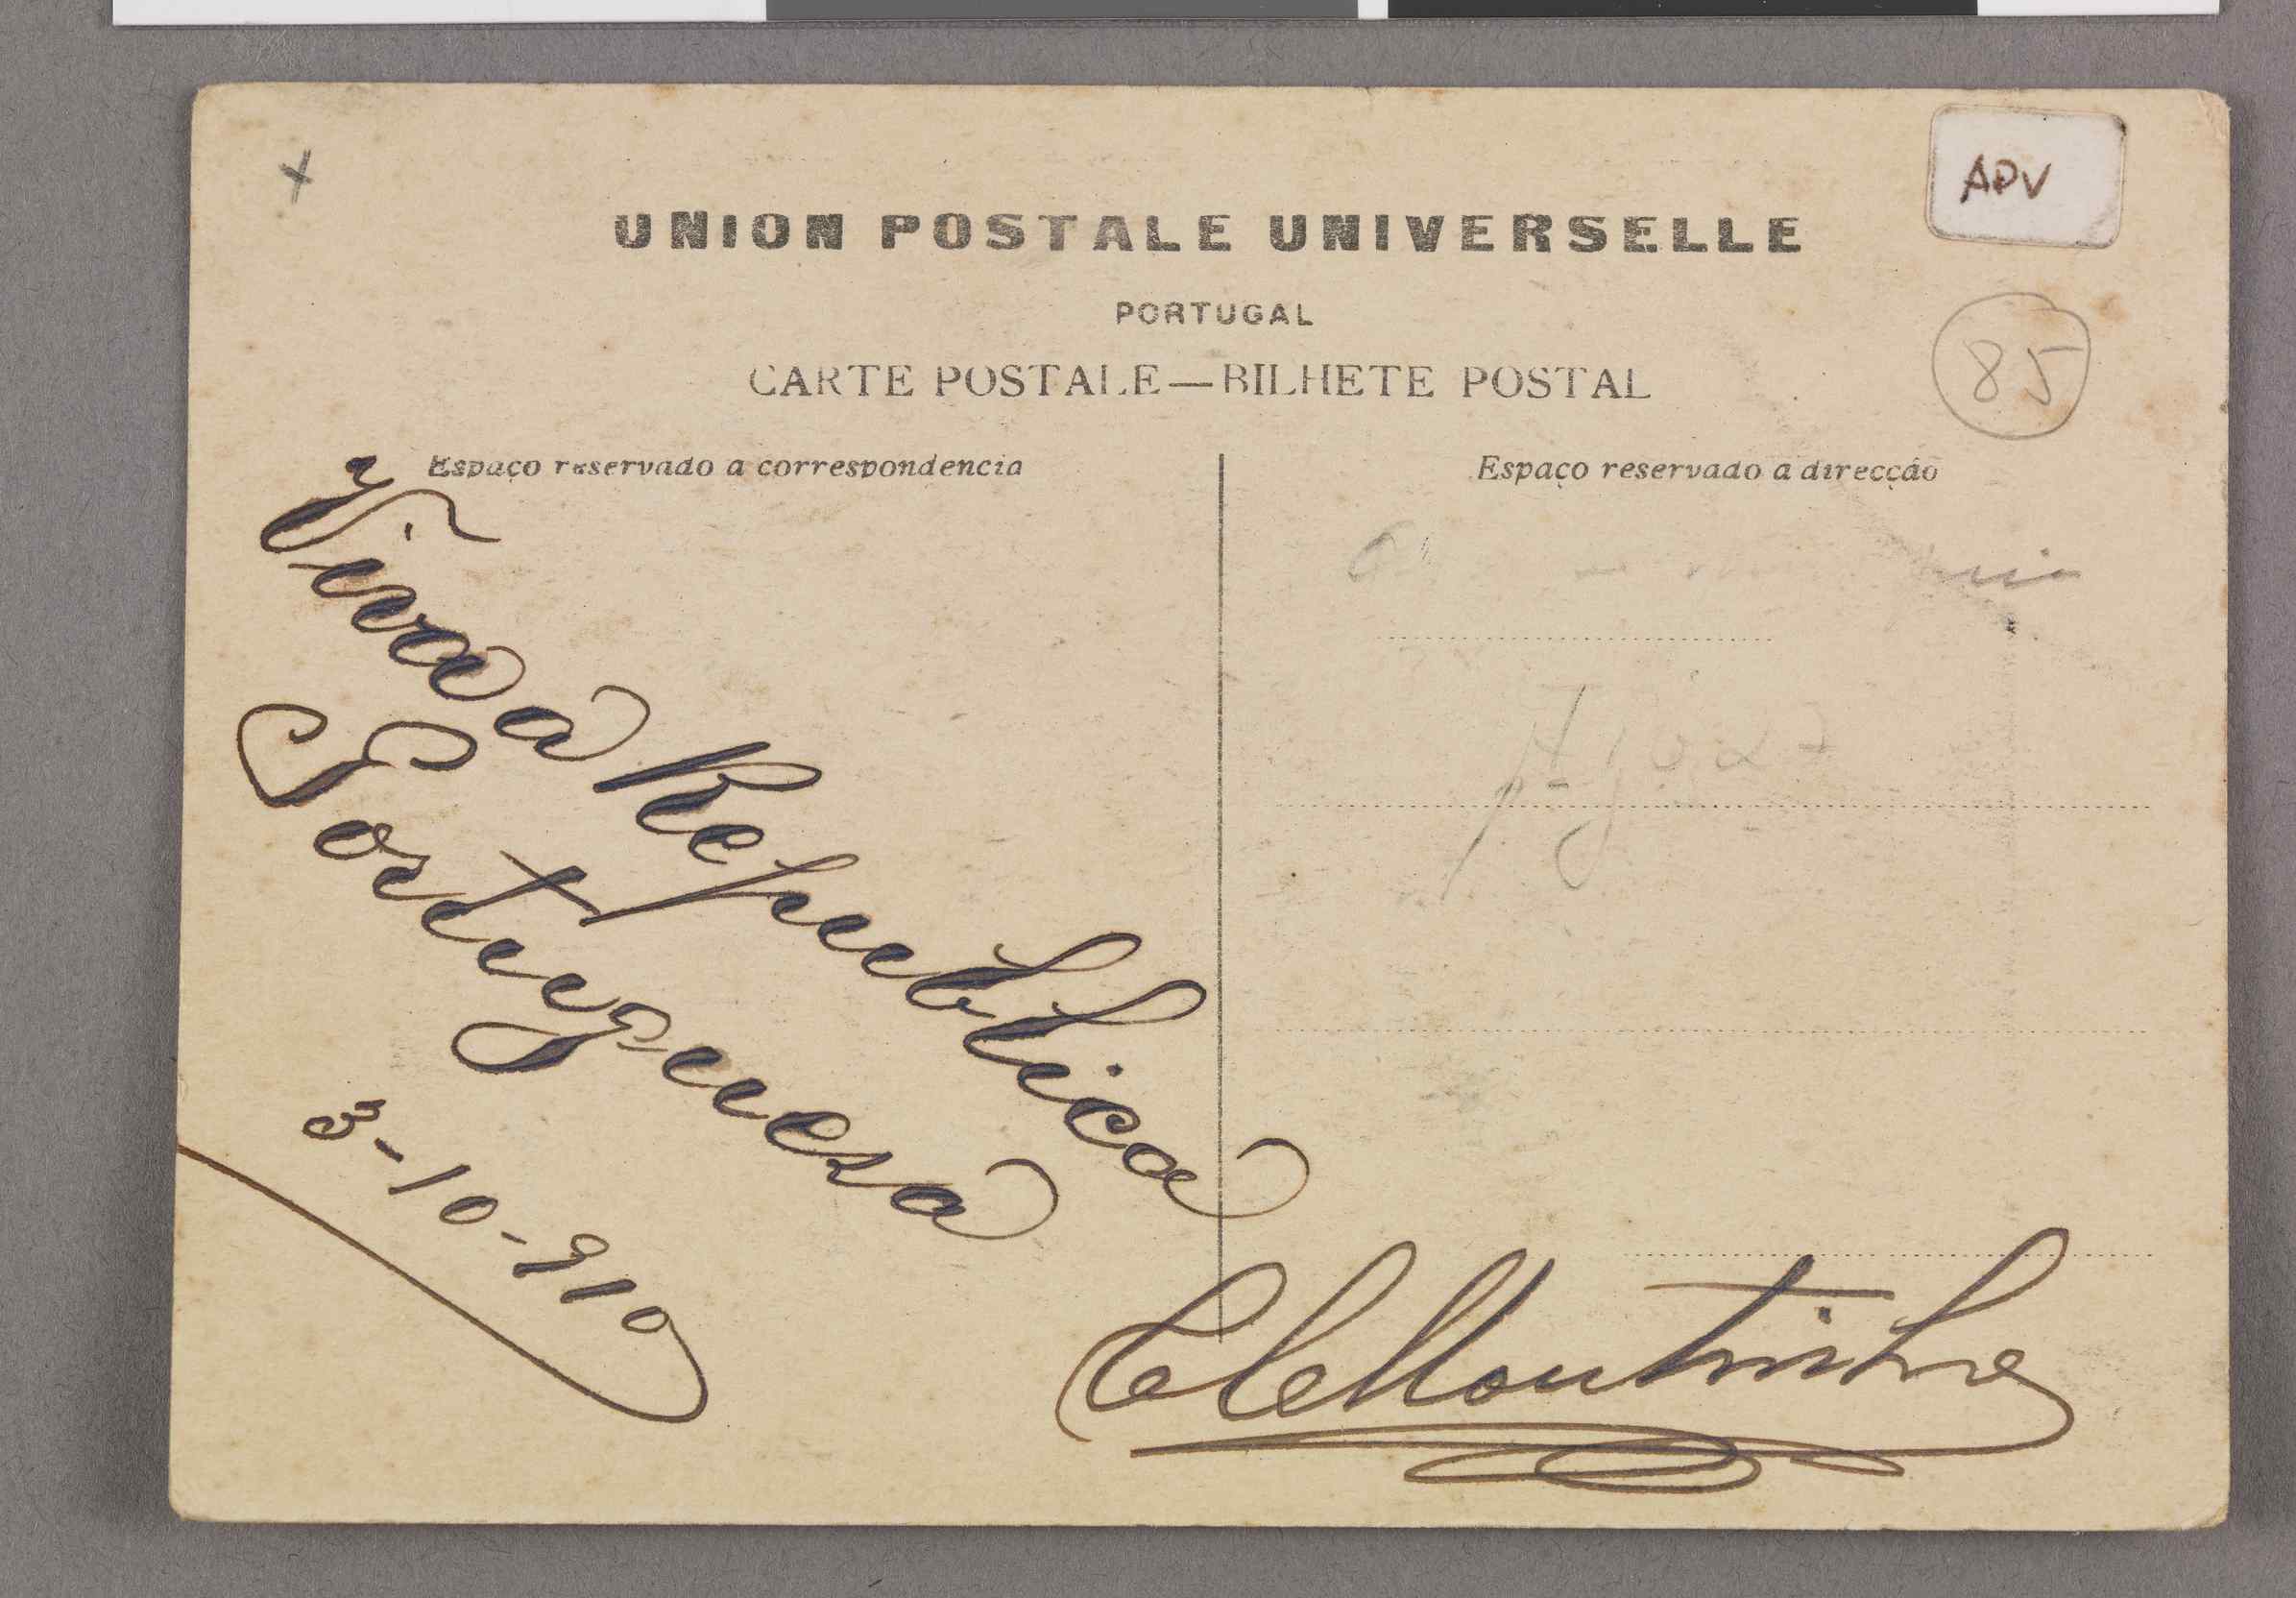 x
ADV
UNION POSTALE UNIVERSELLE
PORTUGAL
85
CARTE POSTALE—BILHETE POSTAL
Espaço reservado a correspondencia
Espaço reservado a direcção
Viva a Republica
Portugueza
3-10-910
Moutinho